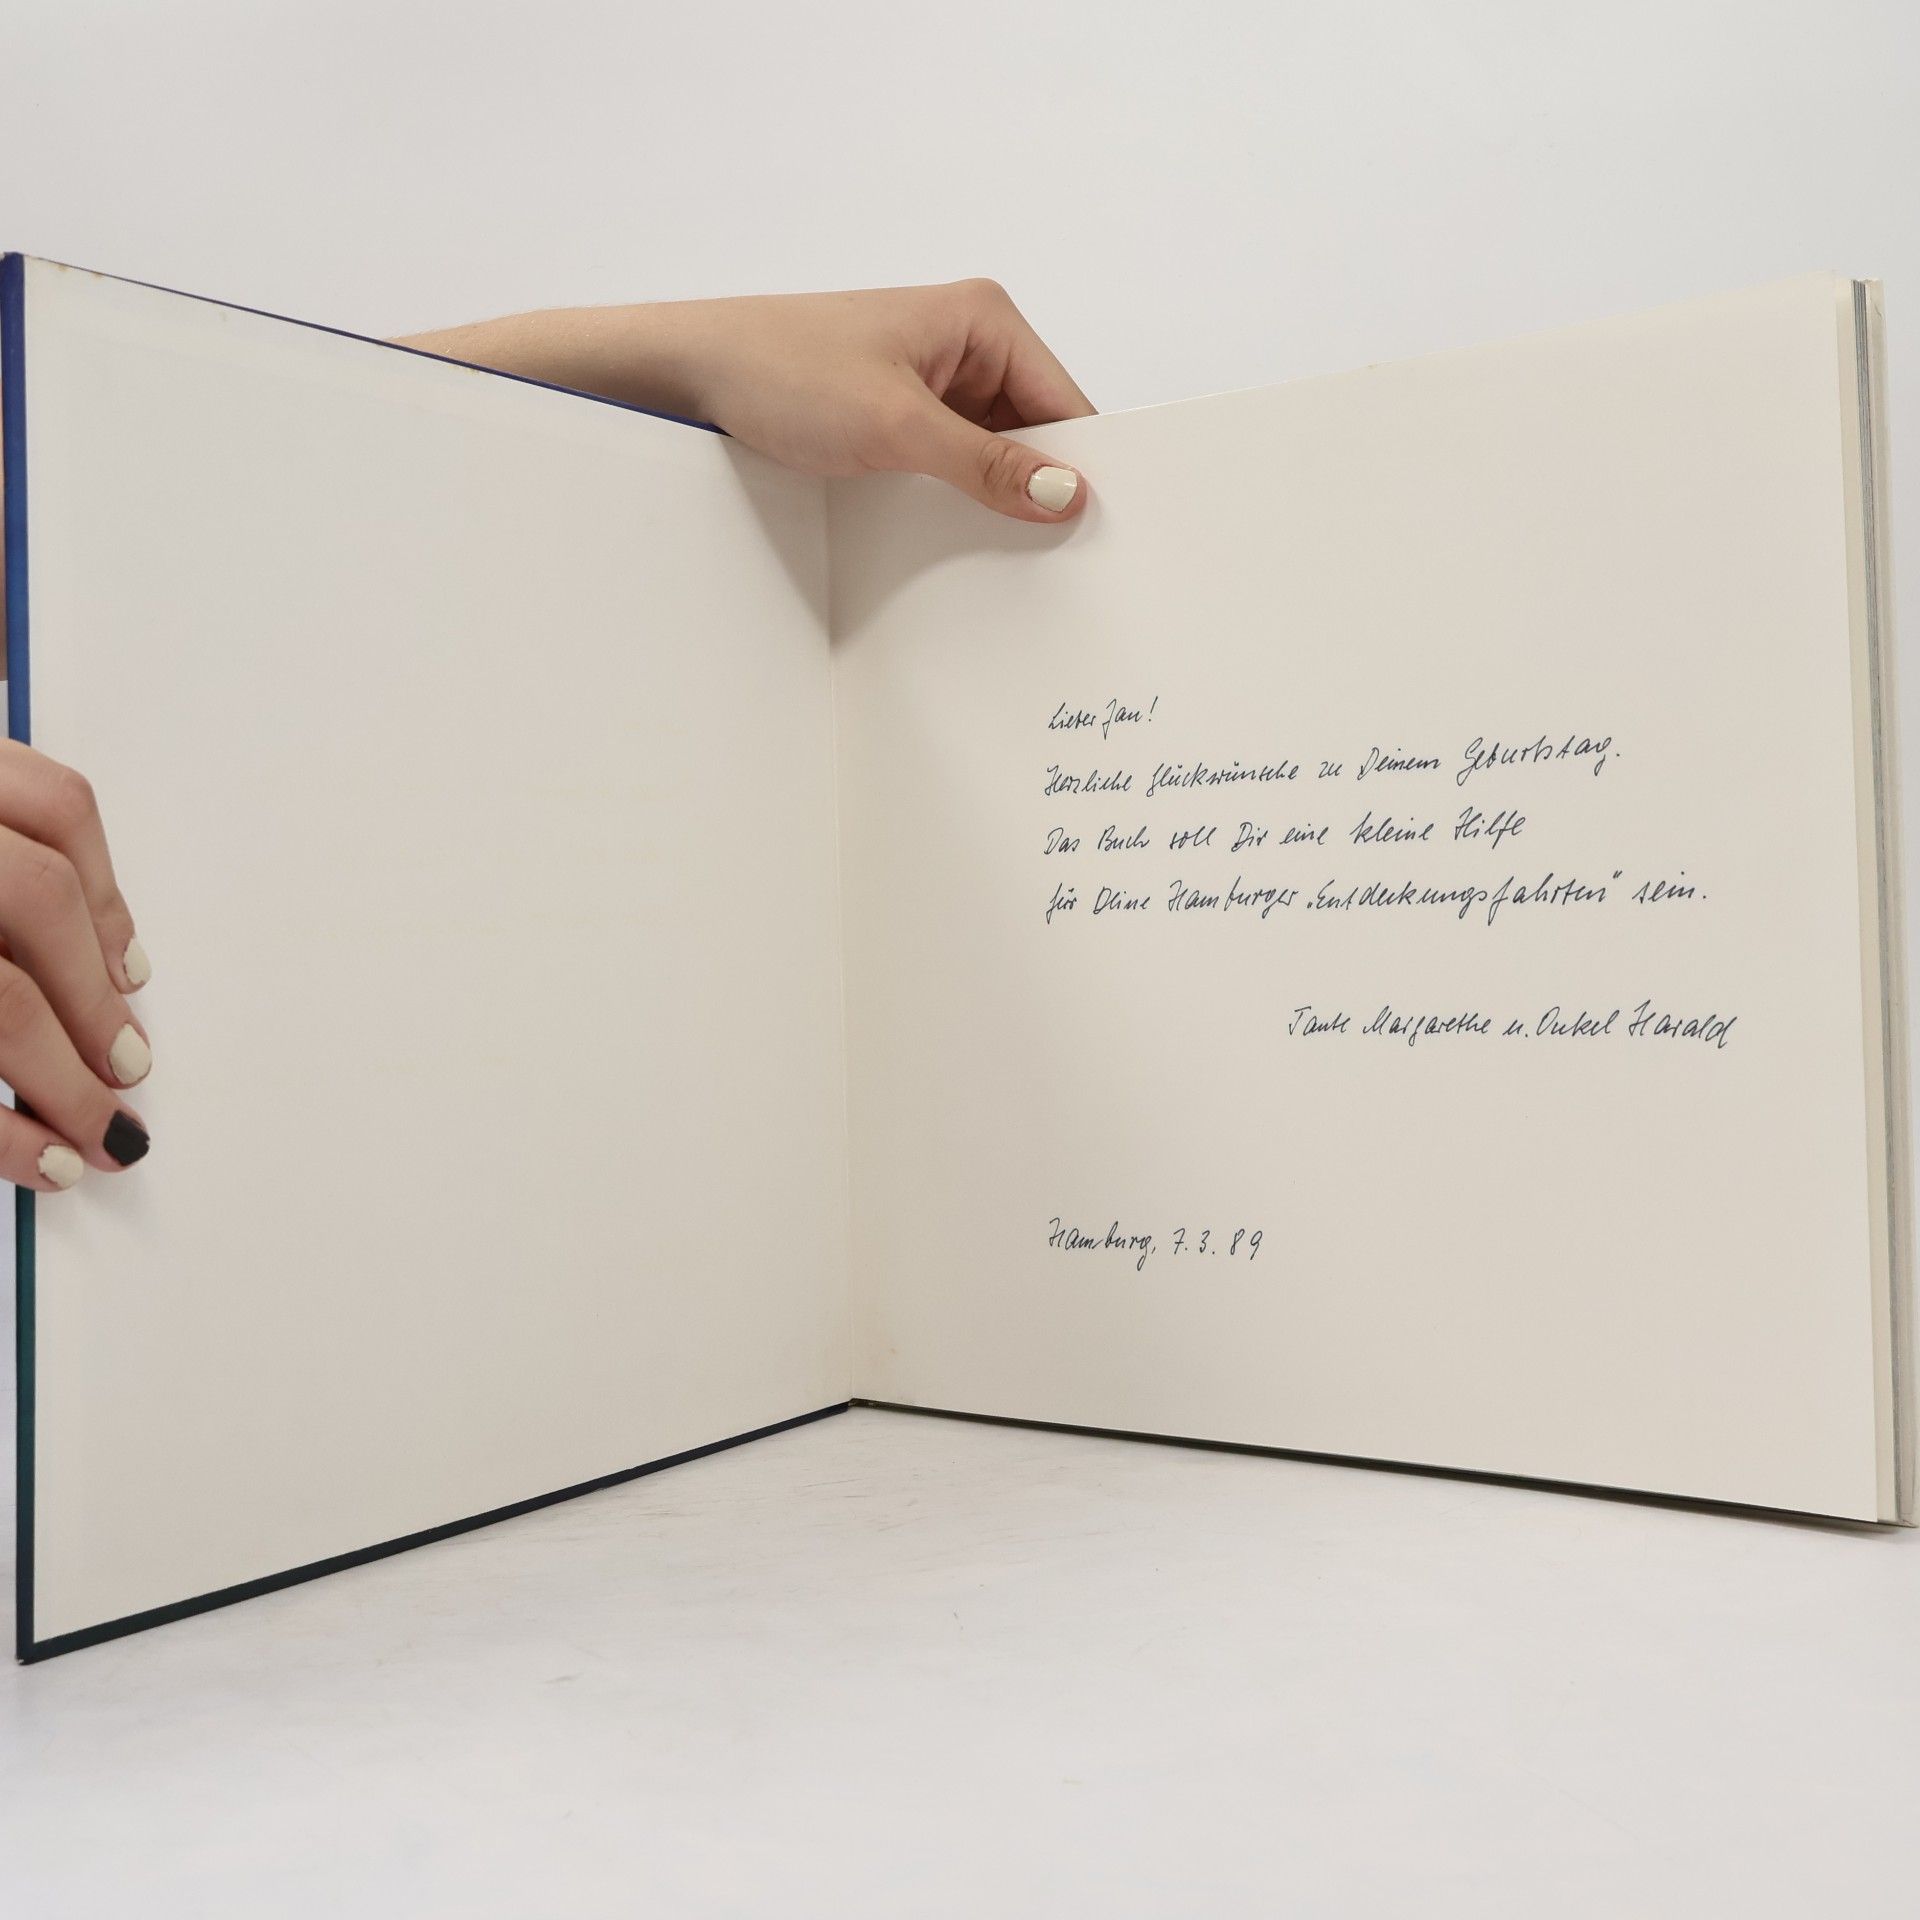 Lieber Jan!
Herzliche Glückwünsche zu Deinem Geburtstag.
Das Buch soll Dir eine kleine Hilfe
für Deine Hamburger „Entdeckungsfahrten" sein.
Tante Margarethe u. Onkel Harald
Hamburg, 7. 3. 89